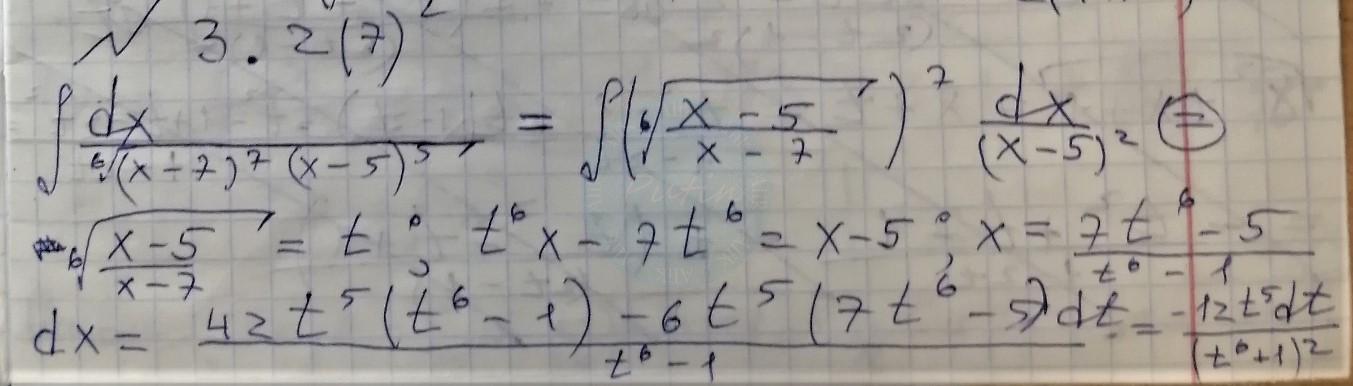 3. 2(7)²
∫ dx / ⁶√((x-7)⁷ (x-5)⁵) = ∫ (⁶√((x-5)/(x-7)))⁷ dx/(x-5)² ⊜
⁶√((x-5)/(x-7)) = t; t⁶x - 7t⁶ = x-5; x = (7t⁶ - 5)/(t⁶ - 1)
dx = (42t⁵(t⁶ - 1) - 6t⁵(7t⁶ - 5))dt / (t⁶ - 1) = -12t⁵dt / (t⁶+1)²